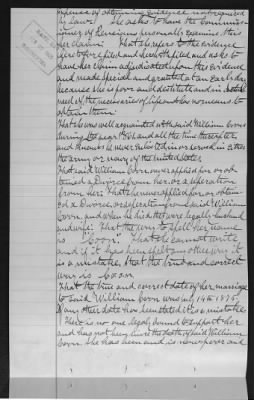 expense of obtaining evidence not required
by law. She asks to have the Commiss-
ioner of Pensions personally examine this
her claim. That she refers to the evidence
heretofore filed and herewith filed and asks to
have her claim adjudicated upon the evidence
and made special and granted at an early day
because she is poor and destitute and in
need of the necessaries of life and has no means to
obtain them.
That she was well acquainted with said William Coon
during and all the time thereafter
and knows he never enlisted in or served in either
the army or navy of the United States
That said William Coon never applied for or ob-
tained a Divorce from her, or a separation
from her. That she never applied for or obtain-
ed a Divorce, or separation from said William
Coon, and when he died they were legally husband
and wife. That the way to spell her name
is "Coon". That she can not write
and if it has been spelt any other way it
is a mistake. That the true and correct
way is Coon
That the true and correct date of her marriage
to said William Coon was July 14th 1875,
If any other date has been stated it is a mistake
There is no one legally bound to support her
and has not been since the death of said William
Coon. She has been and is now poor and